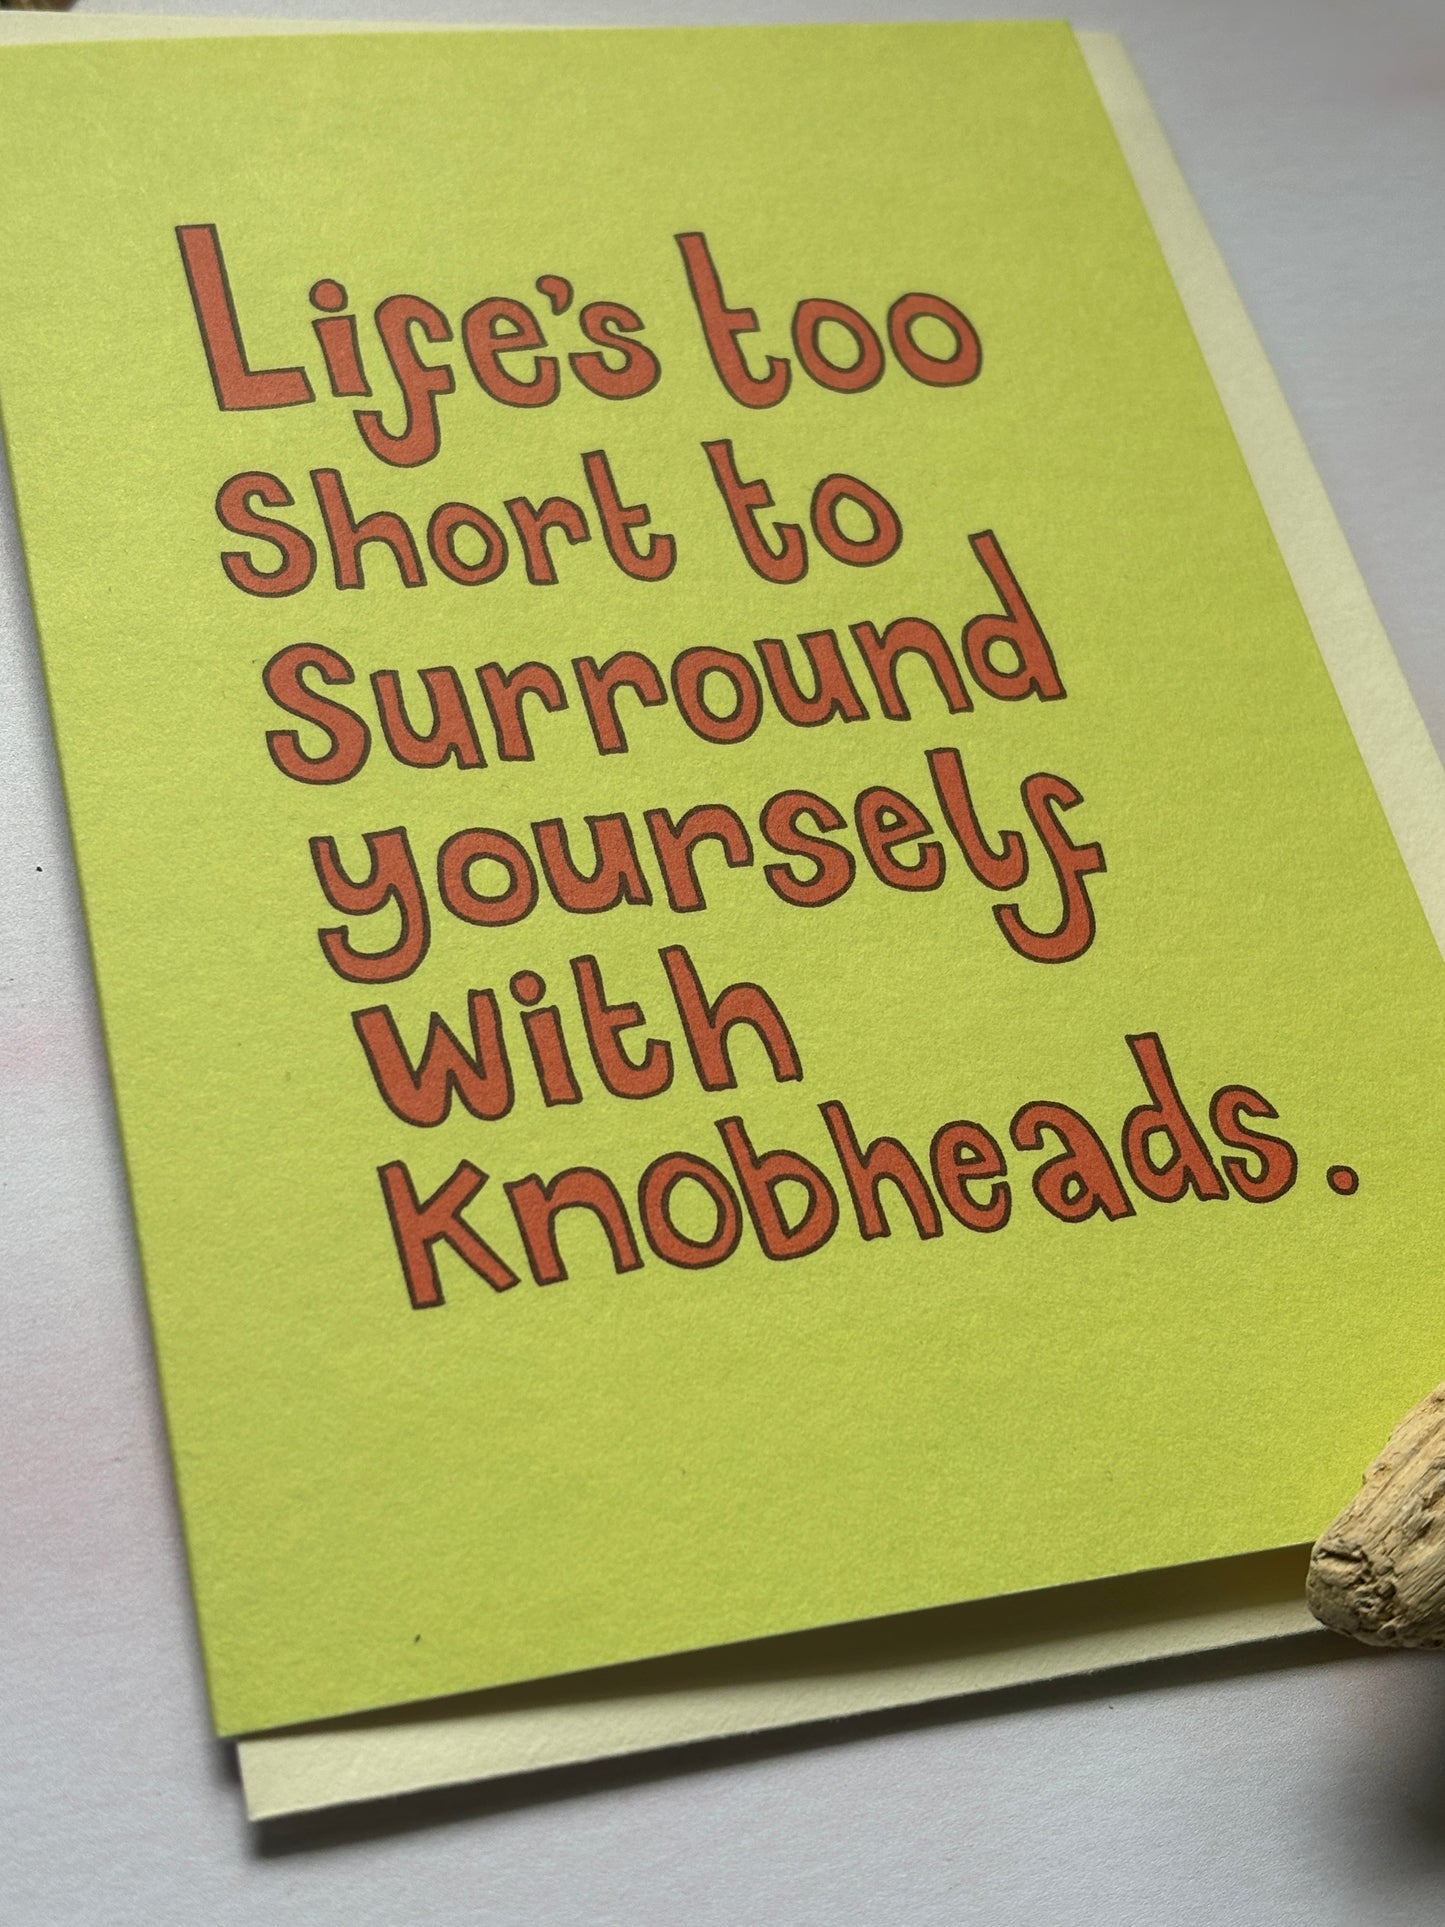 Life's too
Short to
Surround
yourself
with
Knobheads.